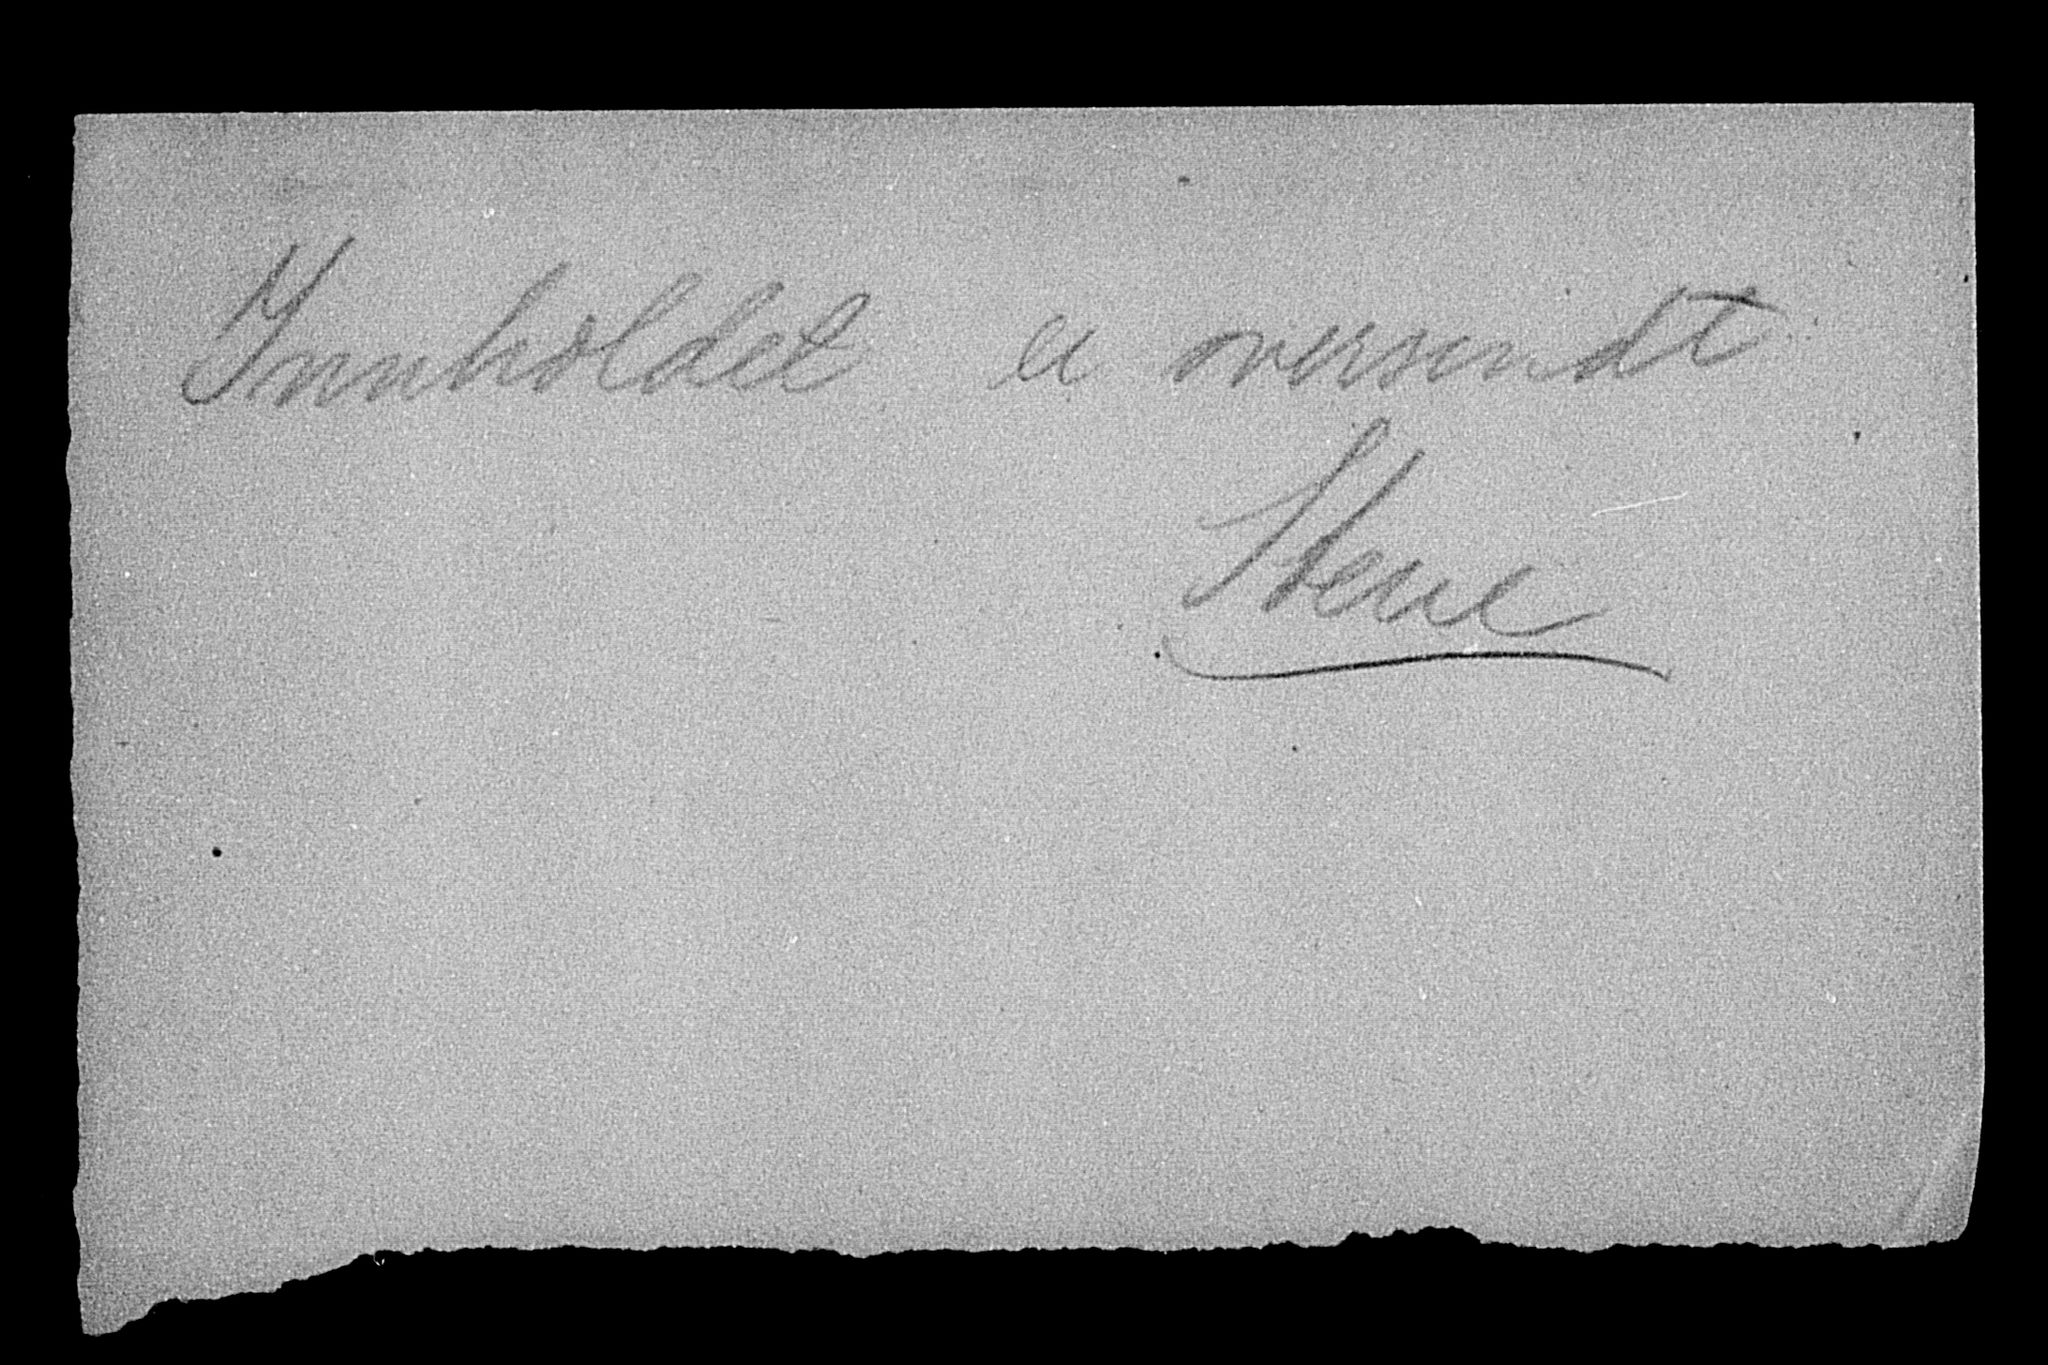 Innholdet er oversendt
Stene